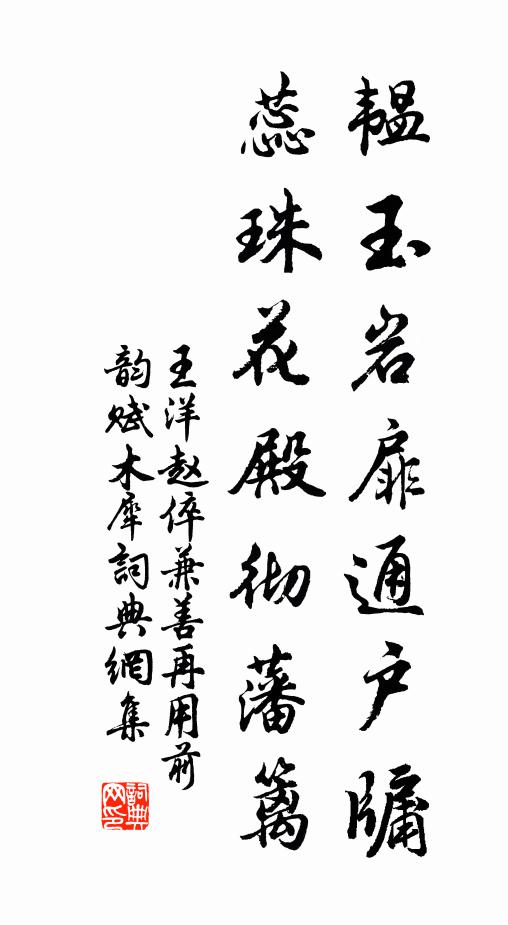 韫玉岩扉通户牖
蕊珠花殿彻藩篱
王洋赵倅兼善再用前
韵赋木犀詞典網集
詞典
网印